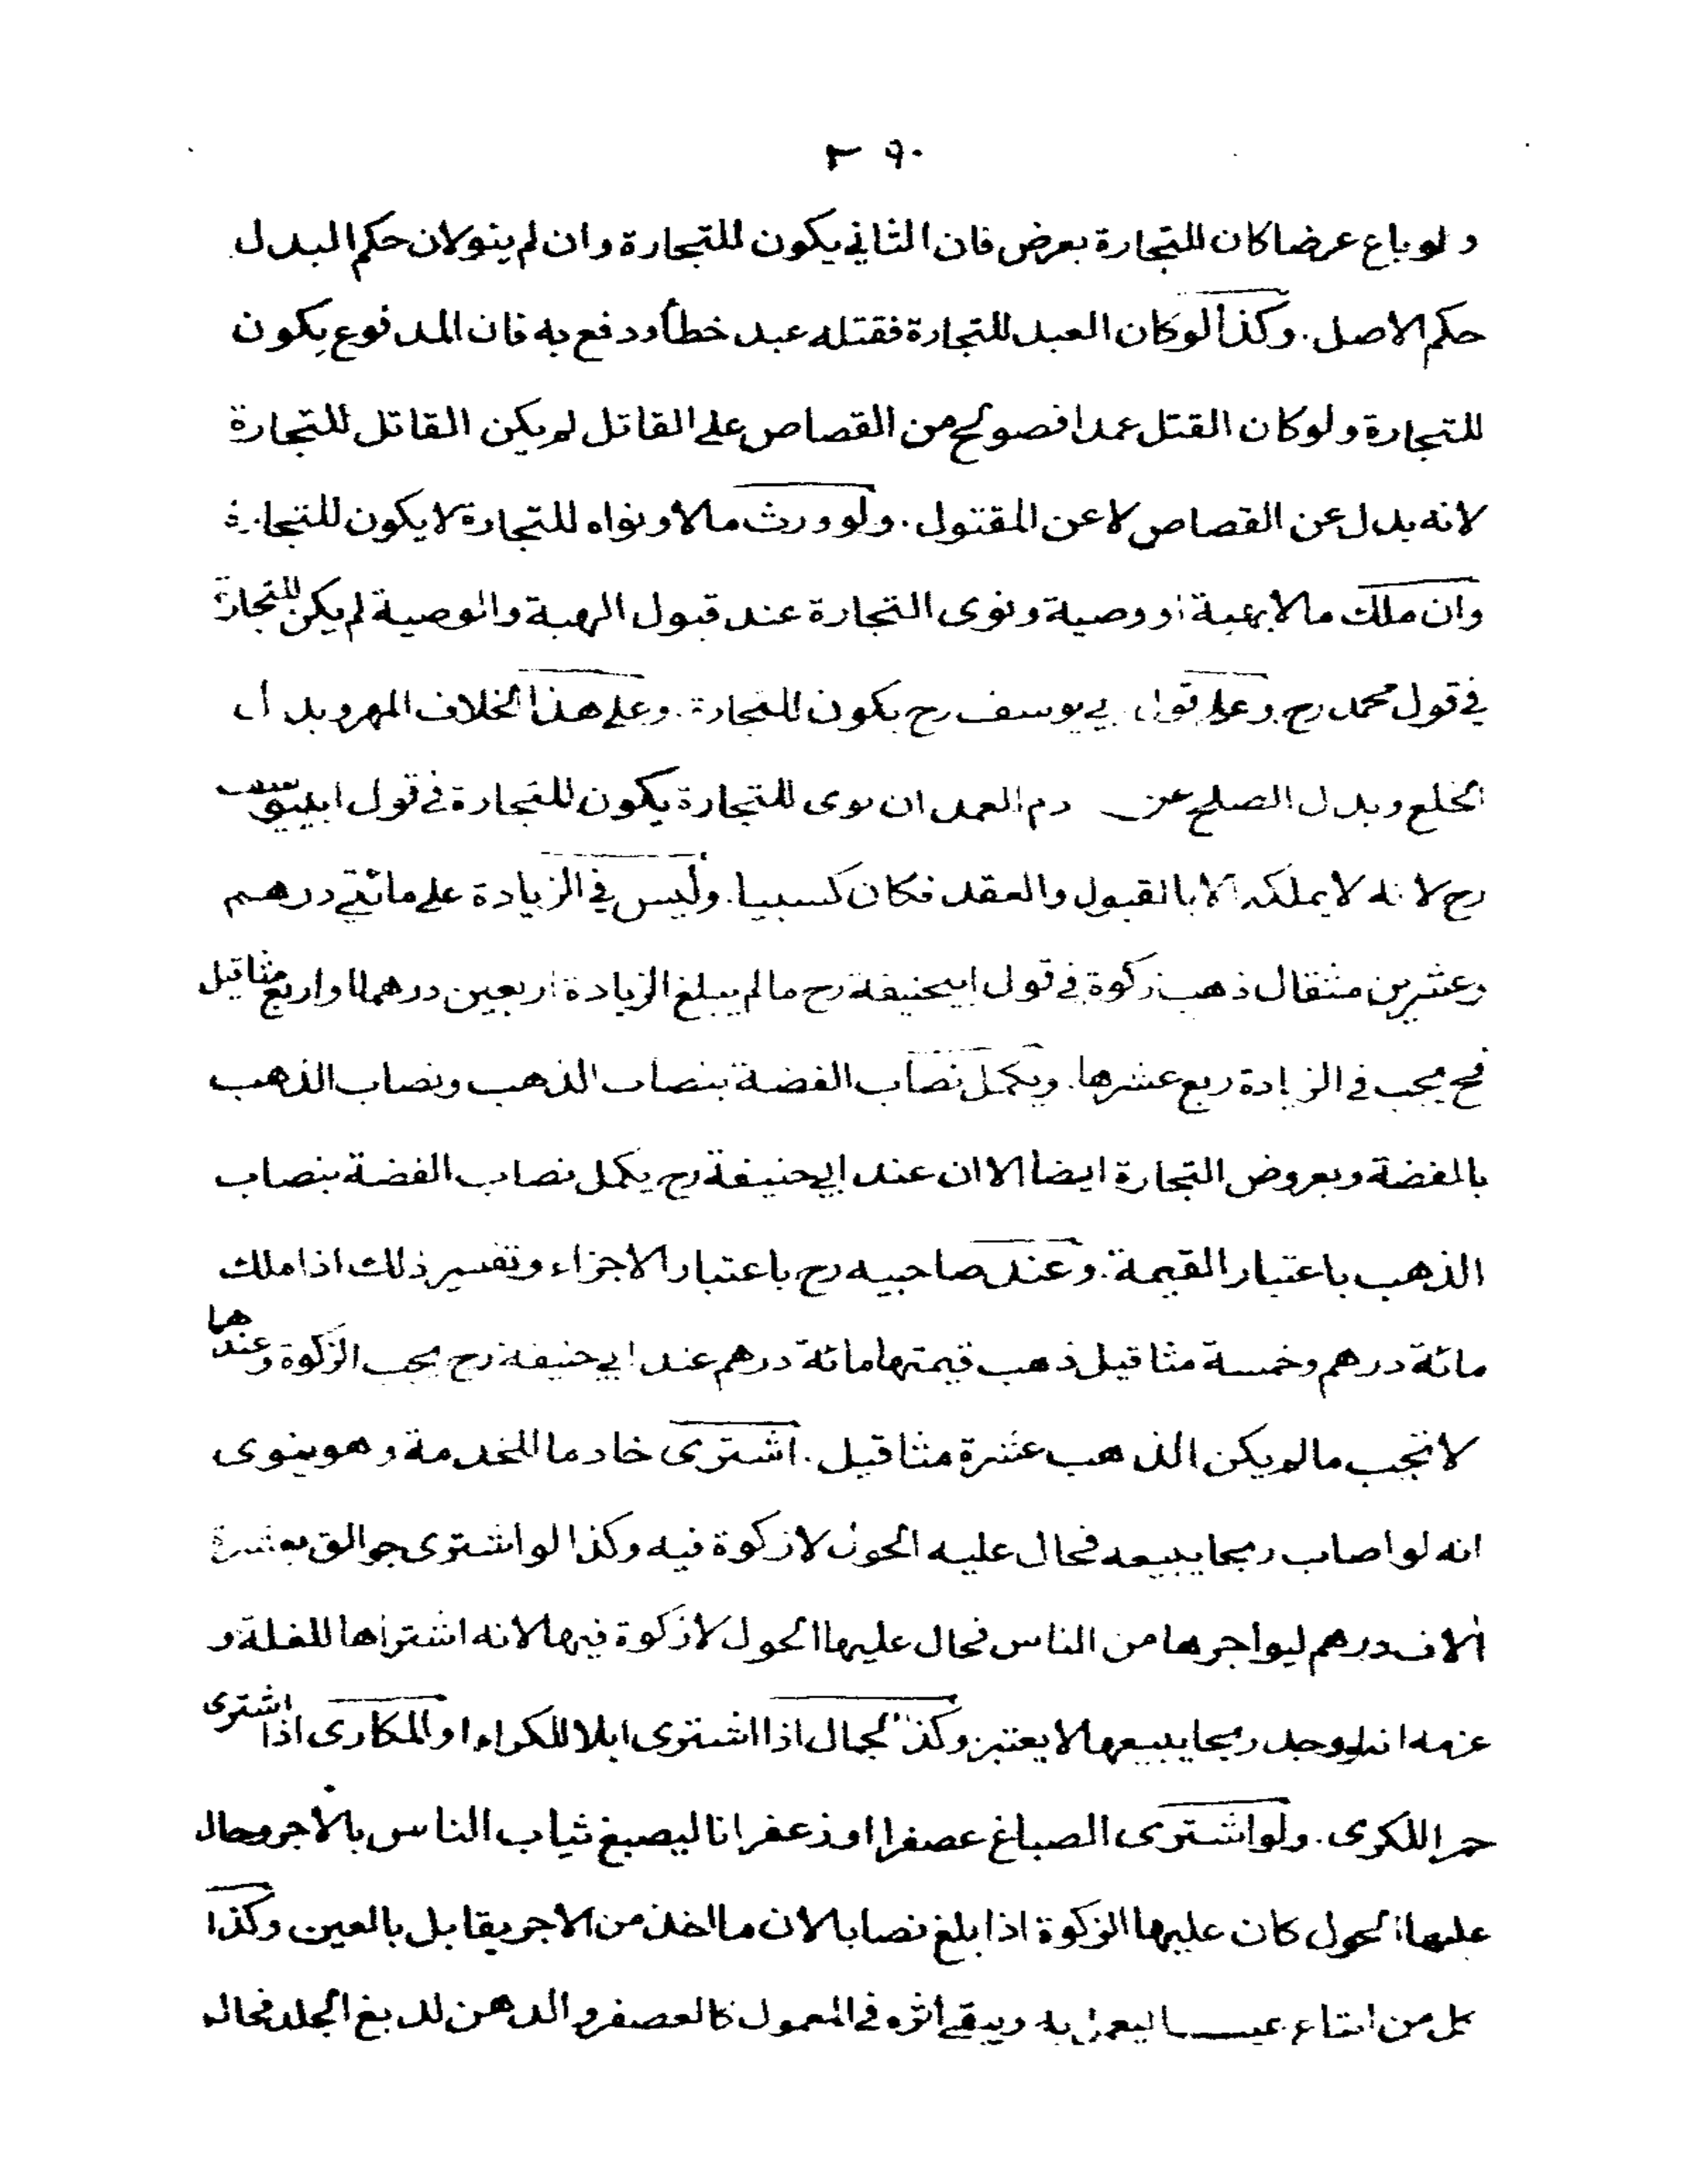 ٢٩٠
ولو باع عرضا كان للتجارة بعرض فان الثاني يكون للتجارة وان لم ينو لان حكم البدل
حكم الاصل. وكذا لو كان العبد للتجارة فقتله عبد خطأ ودفع به فان المدفوع يكون
للتجارة ولو كان القتل عمدا فصولح من القصاص على القاتل لم يكن القاتل للتجارة
لانه بدل عن القصاص لا عن المقتول. ولو ورث مالا ونواه للتجارة لا يكون للتجارة
وان ملك مالا بهبة او وصية ونوى التجارة عند قبول الهبة والوصية لم يكن للتجارة
في قول محمد رح وعلى قول ابي يوسف رح يكون للتجارة. وعلى هذا الخلاف المهر وبدل
الخلع وبدل الصلح عن دم العمد ان نوى للتجارة يكون للتجارة في قول ابييوسف
رح لانه لا يملكه الا بالقبول والعقد فكان كسبيا. وليس في الزيادة على مائتي درهم
وعشرين مثقال ذهب زكوة في قول ابيحنيفة رح ما لم يبلغ الزيادة اربعين درهما او اربع مثاقيل
فح يجب في الزيادة ربع عشرها. ويكمل نصاب الفضة بنصاب الذهب ونصاب الذهب
بالفضة وبعروض التجارة ايضا الا ان عند ابي حنيفة رح يكمل نصاب الفضة بنصاب
الذهب باعتبار القيمة. وعند صاحبيه رح باعتبار الاجزاء وتفسير ذلك اذا ملك
مائة درهم وخمسة مثاقيل ذهب قيمتها مائة درهم عند ابي حنيفة رح يجب الزكوة وعندهما
لا تجب ما لم يكن الذهب عشرة مثاقيل. اشترى خادما للخدمة وهو ينوى
انه لو اصاب ربحا يبيعه فحال عليه الحول لا زكوة فيه وكذا لو اشترى جوالق بعشرة
آلاف درهم ليواجرها من الناس فحال عليها الحول لا زكوة فيها لانه اشتراها للغلة و
عزمه انه لو وجد ربحا يبيعها لا يعتبر وكذا الجمال اذا اشترى ابلا للكراء او المكارى اذا اشترى
حمرا للكرى. ولو اشترى الصباغ عصفرا او زعفرانا ليصبغ ثياب الناس بالاجر وحال
عليها الحول كان عليها الزكوة اذا بلغ نصابا لان ما اخذ من الاجر يقابل بالعين وكذا
كل من ابتاع عينا ليعمل به ويبقى أثره في المعمول كالعصفر والدهن لدبغ الجلد فحال